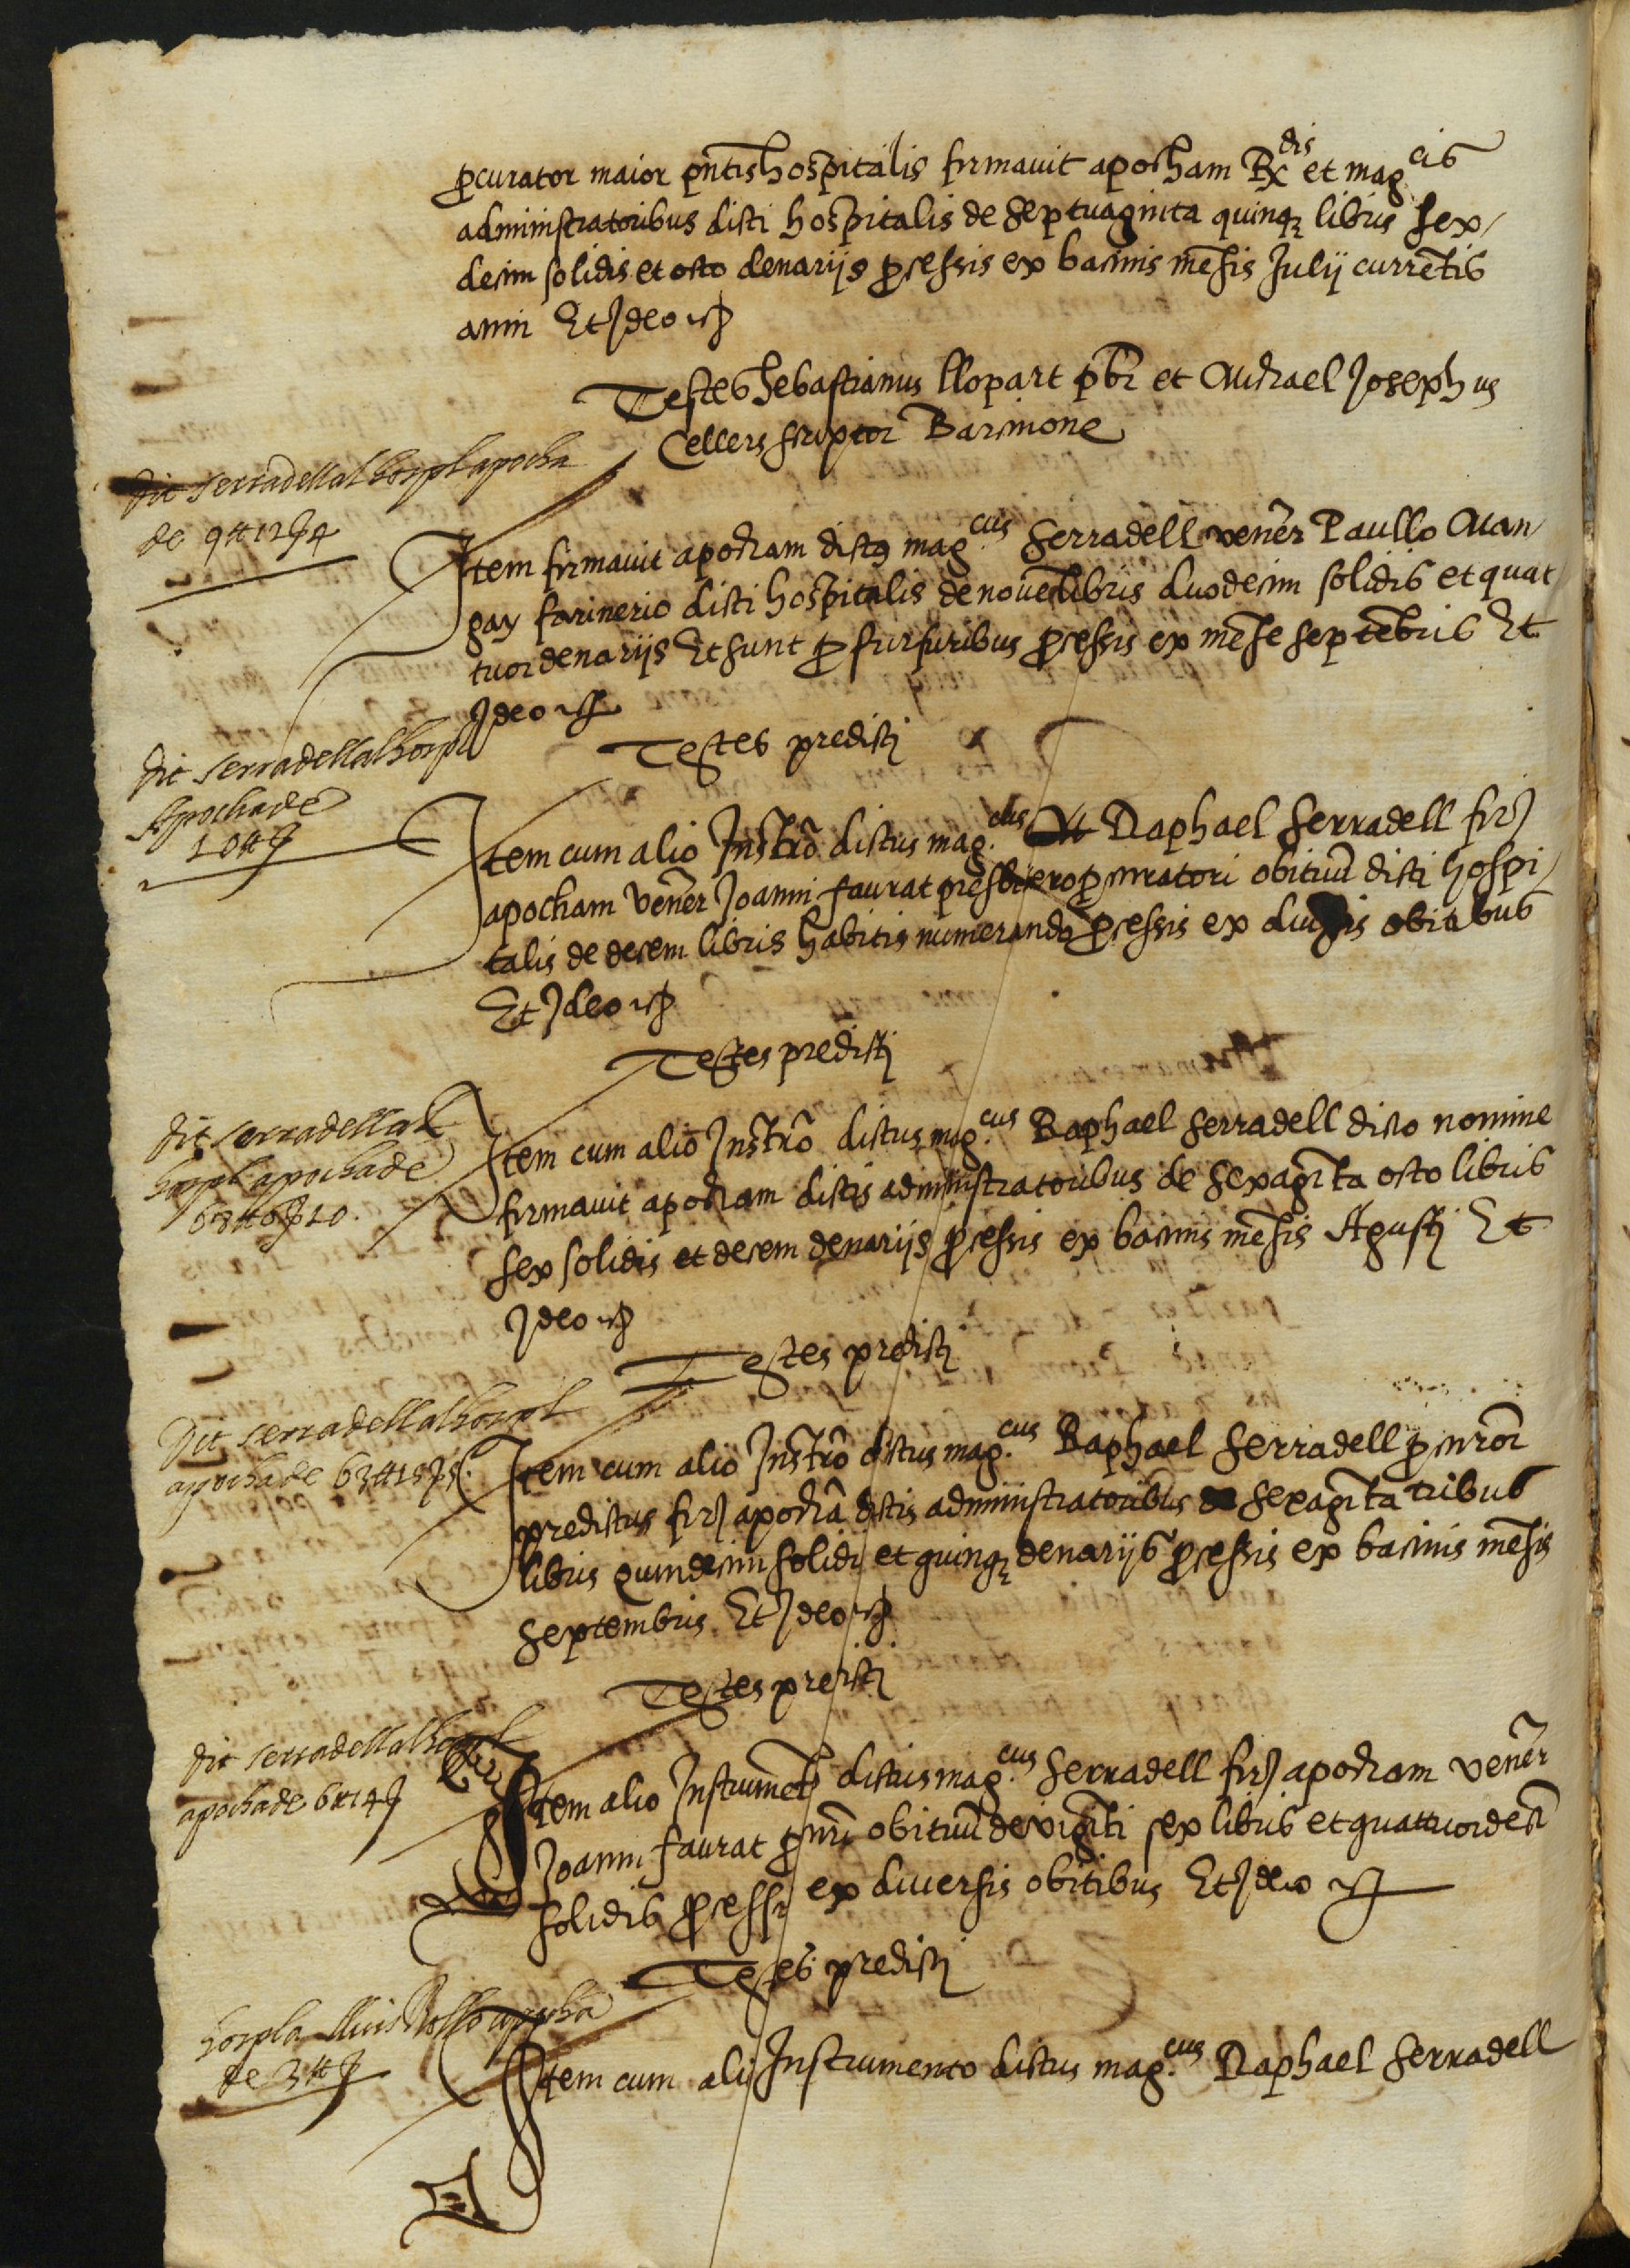 ꝓcurator maior pñtis hospitalis firmauit apocham Rdis et magcis
administratoribus dicti hospitalis de septuaginta quinqꝫ libris sex/
decim solidis et octo denarijs ꝓcessis ex bacinis mẽsis Julij currẽtis
anni Et Jdeo &c
Testes Sebastianus llopart pbr et Michael Josephus
Cellers scriptor Barcinone
dit serradell al hospl apocha
de 9 ℔ 12 ẞ 4
Item firmauit apocham dictꝰ mag.cus Serradell venẽr Paullo Man/
gay farinerio dicti hospitalis de nouẽ libris duodecim solidis et quat/
tuor denarijs Et sunt ꝓ furfuribus ꝓcessis ex mẽse septẽbris Et
Jdeo &c
Testes predicti
dit serradell al hospl
Apocha de
10 ℔ ẞ
Item cum alio Instrõ dictus mag.cus Raphael Serradell fir)
apocham venẽr Joanni faurat presbitero ꝓcuratori obituũ dicti hospi/
talis de decem libris habitis numerando ꝓcessis ex obitibus
Et Jdeo &c
Testes predicti
dit serradell al
hospl apocha de
68 ℔ 6 ẞ 10.
Item cum alio Instrõ dictus mag.cus Raphael Serradell dicto nomine
firmauit apocham dictis administratoribus de sexagĩta octo libris
sex solidis et decem denarijs ꝓcessis ex bacinis mẽsis Agusti Et
Jdeo &c
Testes predicti
Dit serradell al hospl
apocha de 63 ℔ 15 ẞ 5.
Item cum alio Instrõ dictus mag.cus Raphael Serradell ꝓcurõr
predictus fir) apochã dictis administratoribus de sexagĩta tribus
libris quindecim solidis et quinqꝫ denarijs ꝓcessis ex bacinis mẽsis
septembris Et Jdeo &c
Testes predicti
dit serradell al hospl
apocha de 6 ℔ 14 ẞ
Item alio Instrumẽto dictus mag.cus Serradell fir) apocham venẽr
Joanni faurat ꝓcuri obituũ de vigĩti sex libris et quattuordecĩ
solidis ꝓcessis ex diuersis obitibus Et Jdeo &c
Testes predicti
hospl a lluis apocha
de 3 ℔ ẞ
Item cum alio Instrumento dictus mag.cus Raphael Serradell